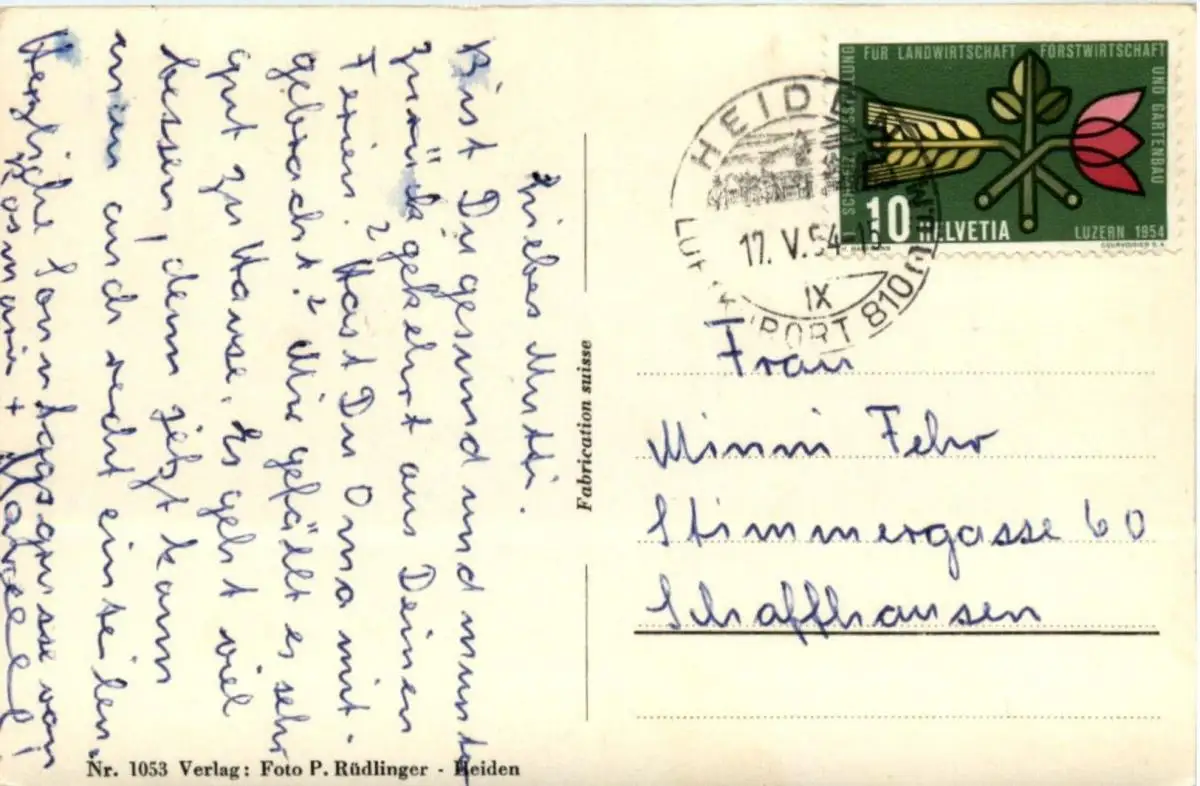 Liebes Mutti.
Bist Du gesund und munter
zurückgekehrt aus Deinen
Ferien? Hast Du Oma mit-
gebracht? Mir gefällt es sehr
gut zu Hause. Es geht viel
besser, denn jetzt kann
auch recht einteilen.
Herzliche Sonntagsgrüsse von
Rosmarie + Marcel!
Nr. 1053 Verlag: Foto P. Rüdlinger - Heiden
Fabrication suisse
HEIDEN
17. V. 54
IX
810m
SCHWEIZ. AUSSTELLUNG FÜR LANDWIRTSCHAFT FORSTWIRTSCHAFT UND GARTENBAU
10 HELVETIA
LUZERN 1954
COURVOISIER S.A.
Frau
Minni Fehr
Stimmergasse 60
Schaffhausen